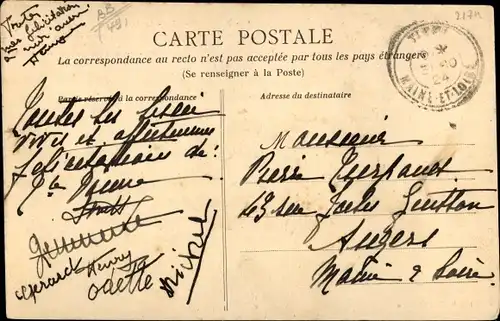 Toutes
mes félicitations
2174
CARTE POSTALE
La correspondance au recto n'est pas acceptée par tous les pays étrangers
(Se renseigner à la Poste)
Partie réservée à la correspondance
Adresse du destinataire
MAINE-ET-LOIRE
Toutes les
vives et affectueuses
félicitations de
Yvonne
Germaine
Gérard Henry
Odette
Michel
Monsieur
Pierre
43 rue Jules Guitton
Angers
Maine & Loire